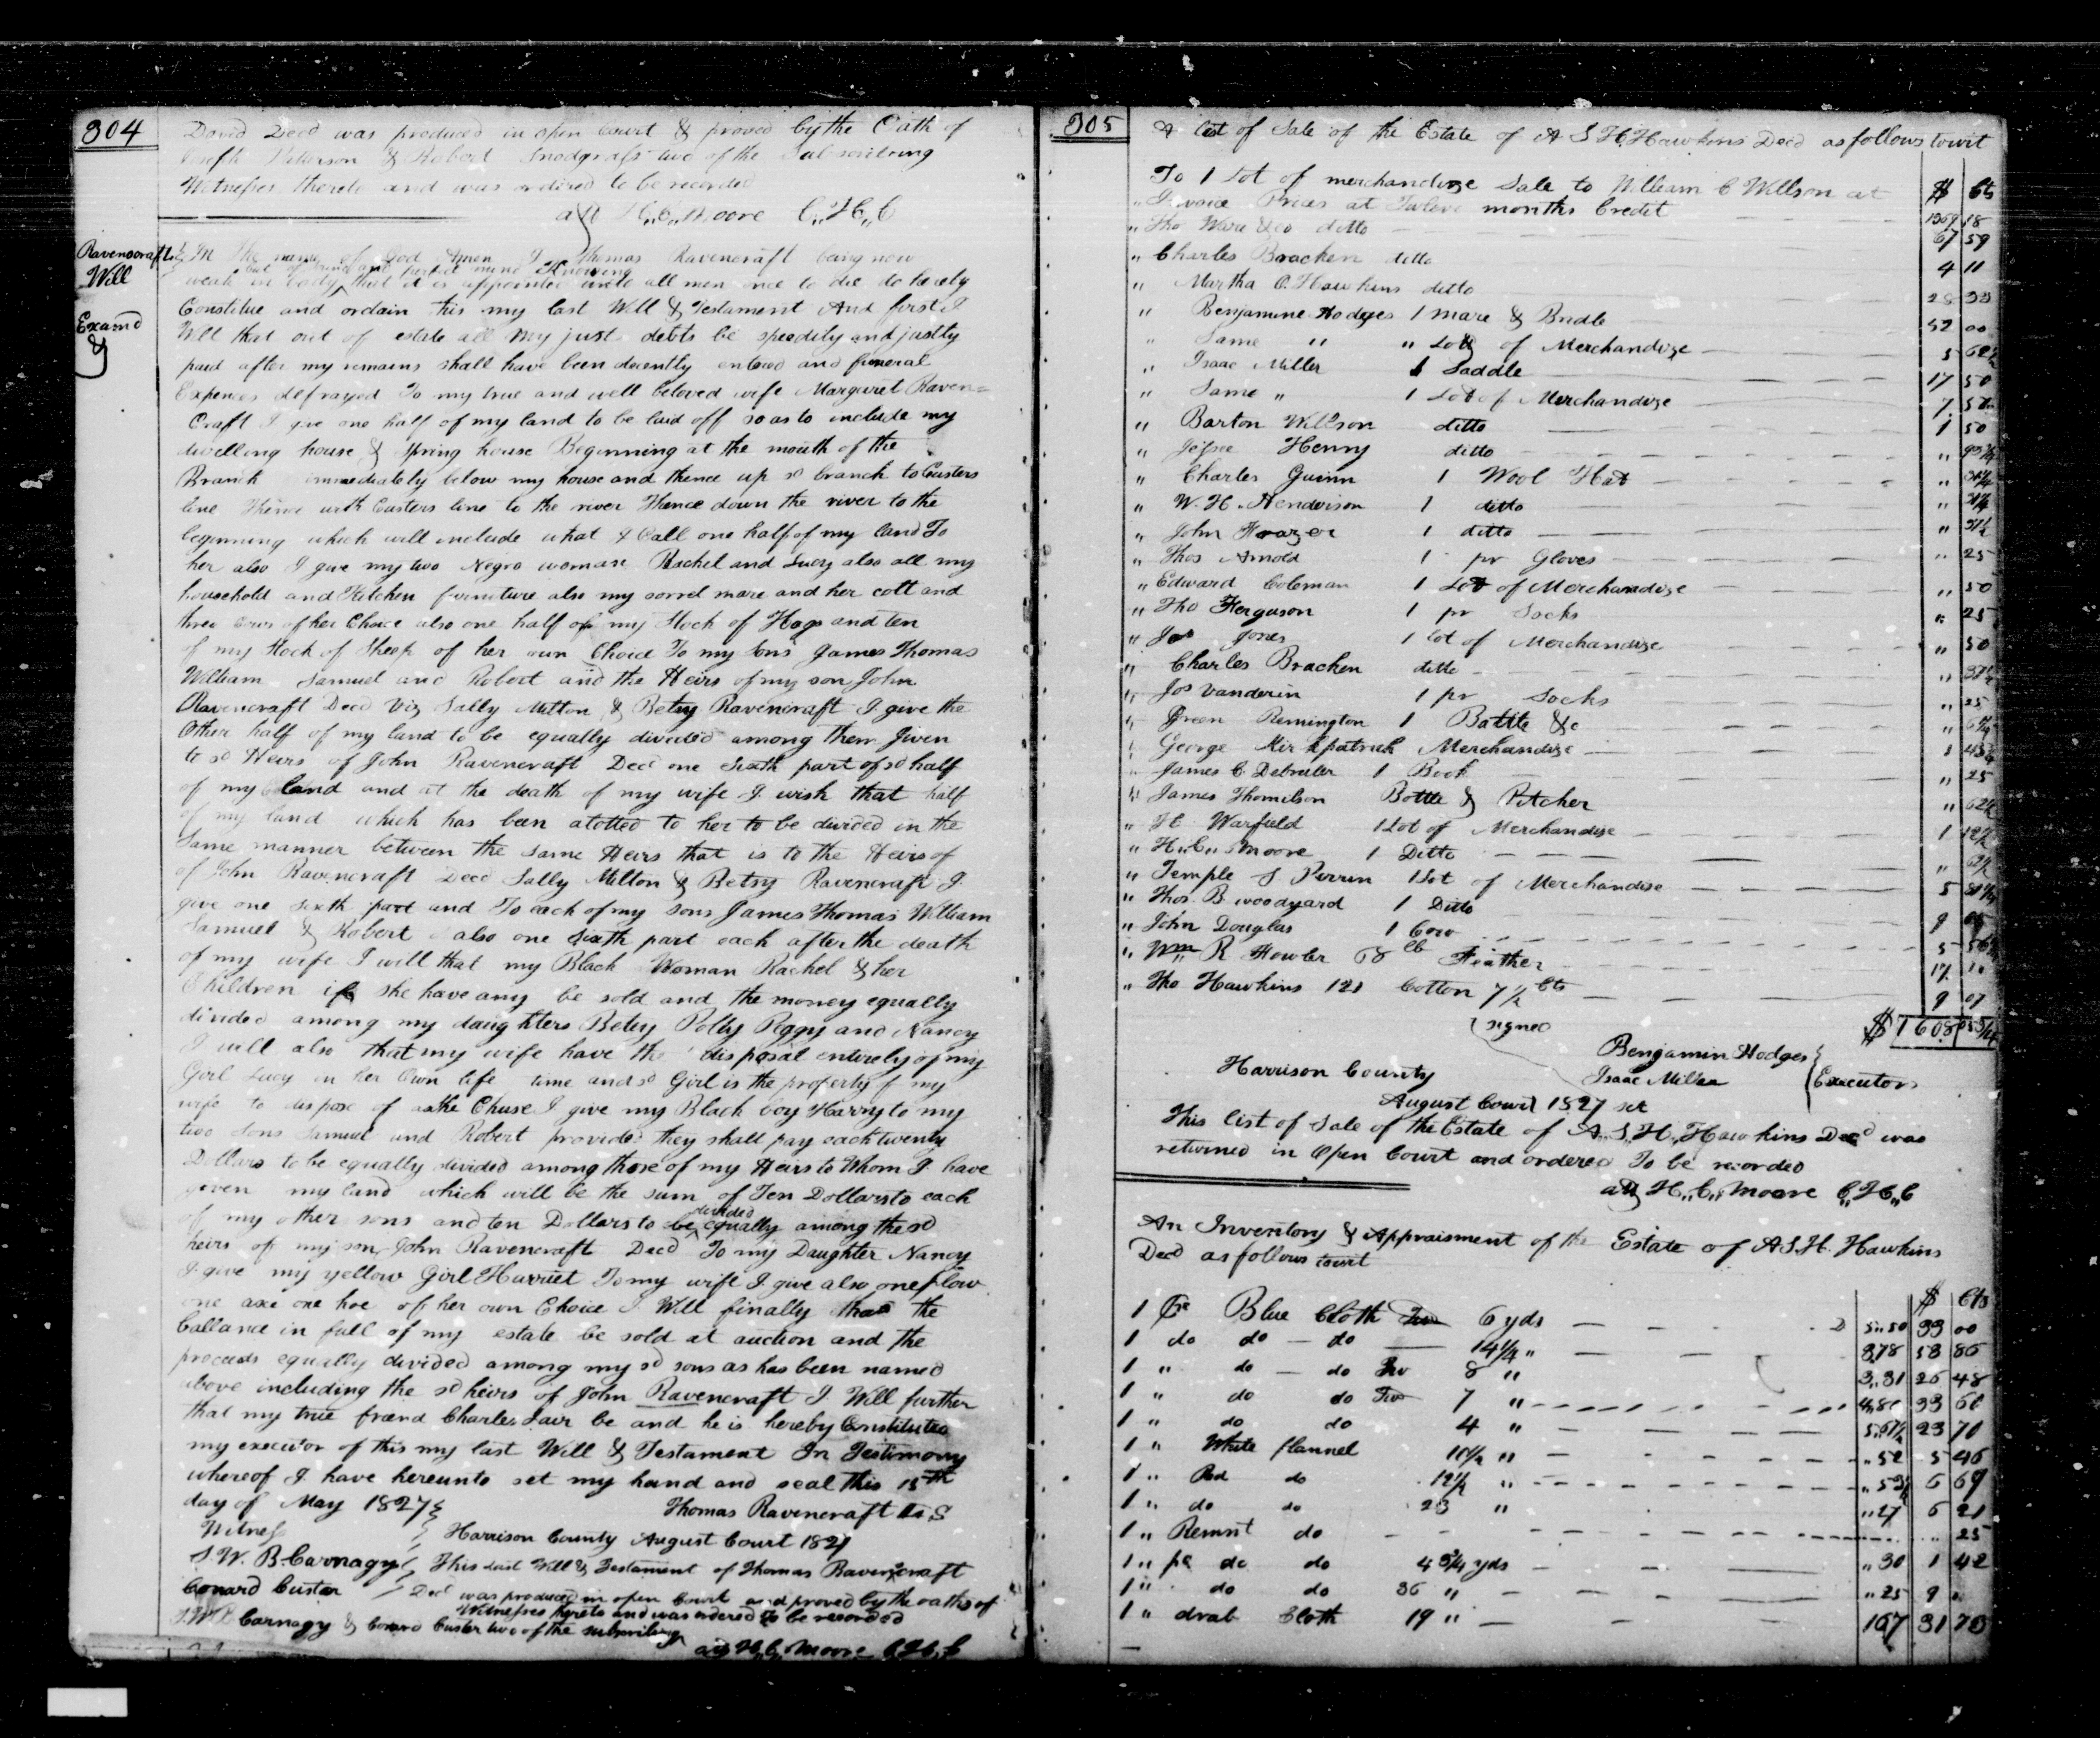 304
David Decd was produced in open Court & proved by the Oath of
Joseph Patterson & Robert Snodgrass two of the Subscribing
Witnesses thereto and was ordered to be recorded
att H,,C,,Moore C,,H,,C
Ravencraft
Will
Examd
In the name of God Amen I Thomas Ravencraft being now
but of sound and perfect mind Knowing
weak in body that it is appointed unto all men once to die do hereby
Constitue and ordain this my last Will & Testament And first I
Will that out of estate all my just debts be speedily and justly
paid after my remains shall have been decently entered and funeral
Expences defrayed To my true and well beloved wife Margaret Raven=
Craft I give one half of my land to be laid off so as to include my
dwelling house & Spring house Beginning at the mouth of the
Branch immediately below my house and thence up sd branch to Custers
line Thence with Custers line to the river Thence down the river to the
beginning which will include what I Call one half of my land To
her also I give my two Negro woman Rachel and Lucy also all my
household and Kitchen furniture also my sorrel mare and her colt and
three Cows of her Choice also one half of my Stock of Hogs and ten
of my Stock of Sheep of her own Choice To my sons James Thomas
William Samuel and Robert and the Heirs of my son John
Ravencraft Decd Viz Sally Milton & Betsy Ravencraft I give the
Other half of my land to be equally divided among them Given
to sd Heirs of John Ravencraft Decd one Sixth part of sd half
of my land and at the death of my wife I wish that half
of my land which has been alotted to her to be divided in the
Same manner between the same Heirs that is to the Heirs of
of John Ravencraft Decd Sally Milton & Betsy Ravencraft I
give one sixth part and To each of my sons James Thomas William
Samuel & Robert also one sixth part each after the death
of my wife I will that my Black Woman Rachel & her
Children if she have any be sold and the money equally
divided among my daughters Betsy Polly Peggy and Nancy
I will also that my wife have the disposal entirely of my
Girl Lucy in her Own life time and sd Girl is the property of my
wife to dispose of as she Chuse I give my Black boy Harry to my
two sons Samuel and Robert provided they shall pay each twenty
Dollars to be equally divided among those of my Heirs to Whom I have
given my land which will be the sum of Ten Dollars to each
divided
of my other sons and ten Dollars to be equally among the sd
heirs of my son John Ravencraft Decd To my Daughter Nancy
I give my yellow Girl Harriet To my wife I give also one plow
one axe one hoe of her own Choice I Will finally that the
ballance in full of my estate be sold at auction and the
proceeds equally divided among my sd sons as has been named
above including the sd heirs of John Ravencraft I Will further
that my true friend Charles Lair be and he is hereby Constituted
my executor of this my last Will & Testament In Testimony
whereof I have hereunto set my hand and seal this 15th
day of May 1827
Thomas Ravencraft
Witness
Harrison County August Court 1827
S.W. B. Carnagy
This last Will & Testament of Thomas Ravencraft
Conard Custer
Decd was produced in open Court and proved by the oaths of
S.W.B. Carnagy & Conard Custer two of the subscribing
Witnesses thereto and was ordered to be recorded
att H,,C,,Moore C,H,,C
305
A list of Sale of the Estate of A S H Hawkins Decd as follows towit
$ Cts
To 1 Lot of merchandize Sale to William C Willson at
Invoice Prices at Twelve months Credit 1369 18
" Tho Ware & co ditto 67 59
" Charles Bracken ditto 4 11
" Martha O. Hawkins ditto
" Benjamine Hodges 1 mare & Bridle 52 00
" Same " " Lott of Merchandize 5 62½
" Isaac Miller 1 Saddle 17 50
" Same " 1 Lot of Merchandize 7 50
" Barton Willson ditto 1 50
" Jessee Henry ditto
" Charles Guinn 1 Wool Hat " 31¼
" W. H. Henderson 1 ditto " 31¼
" John Frazer 1 ditto
" Thos Arnold 1 pr Gloves " 25
" Edward Coleman 1 Lot of Merchandize " 50
" Tho Ferguson 1 pr Socks " 25
" Jos Jones 1 lot of Merchandize " 50
" Charles Bracken ditto " 37½
" Jos Vanderin 1 pr Socks " 25
" Green Remington 1 Bottle &c
" George Kirkpatrick Merchandize 1 43¾
" James C. Debruler 1 Book " 25
" James Thomilson Bottle & Pitcher " 62½
" H. Warfield 1 Lot of Merchandize 1 12½
" H,,C,, Moore 1 Ditto
" Temple S Perrin 1 Lot of Merchandise 5 81¼
" Thos B woodyard 1 Ditto
" John Douglas 1 Cow
" Wm R Fowler 68 lb Feather 17
" Tho Hawkins 121 Cotton 7½ Cts 9 07
signed
Benjamin Hodges
Isaac Miller
Executors
Harrison County
August Court 1827 sct
This list of Sale of the Estate of A,,S,,H,,Hawkins Decd was
returned in Open Court and ordered To be recorded
att H,,C,,Moore C,,H,,C
An Inventory & Appraisment of the Estate of A S.H. Hawkins
Decd as follows towit
$ Cts
1 Pe Blue Cloth 6 yds 5,,50 33 00
1 do do do 14¼ " 3,78 53 86
1 " do do 8 " 3,,31 26 48
1 " do do 7 " 4,80 33 60
1 " do do 4 " 23 70
1 " White flannel 10½ " ,,52 5 46
1 " Red do 12½ " 6 69
1 " do do 23 " ,,27 6 21
1 " Remnt do 25
1 " pe do do 4¾ yds ,,30 1 42
1 " do do 36 " ,,25 9
1 " drab Cloth 19 " 167 31 73